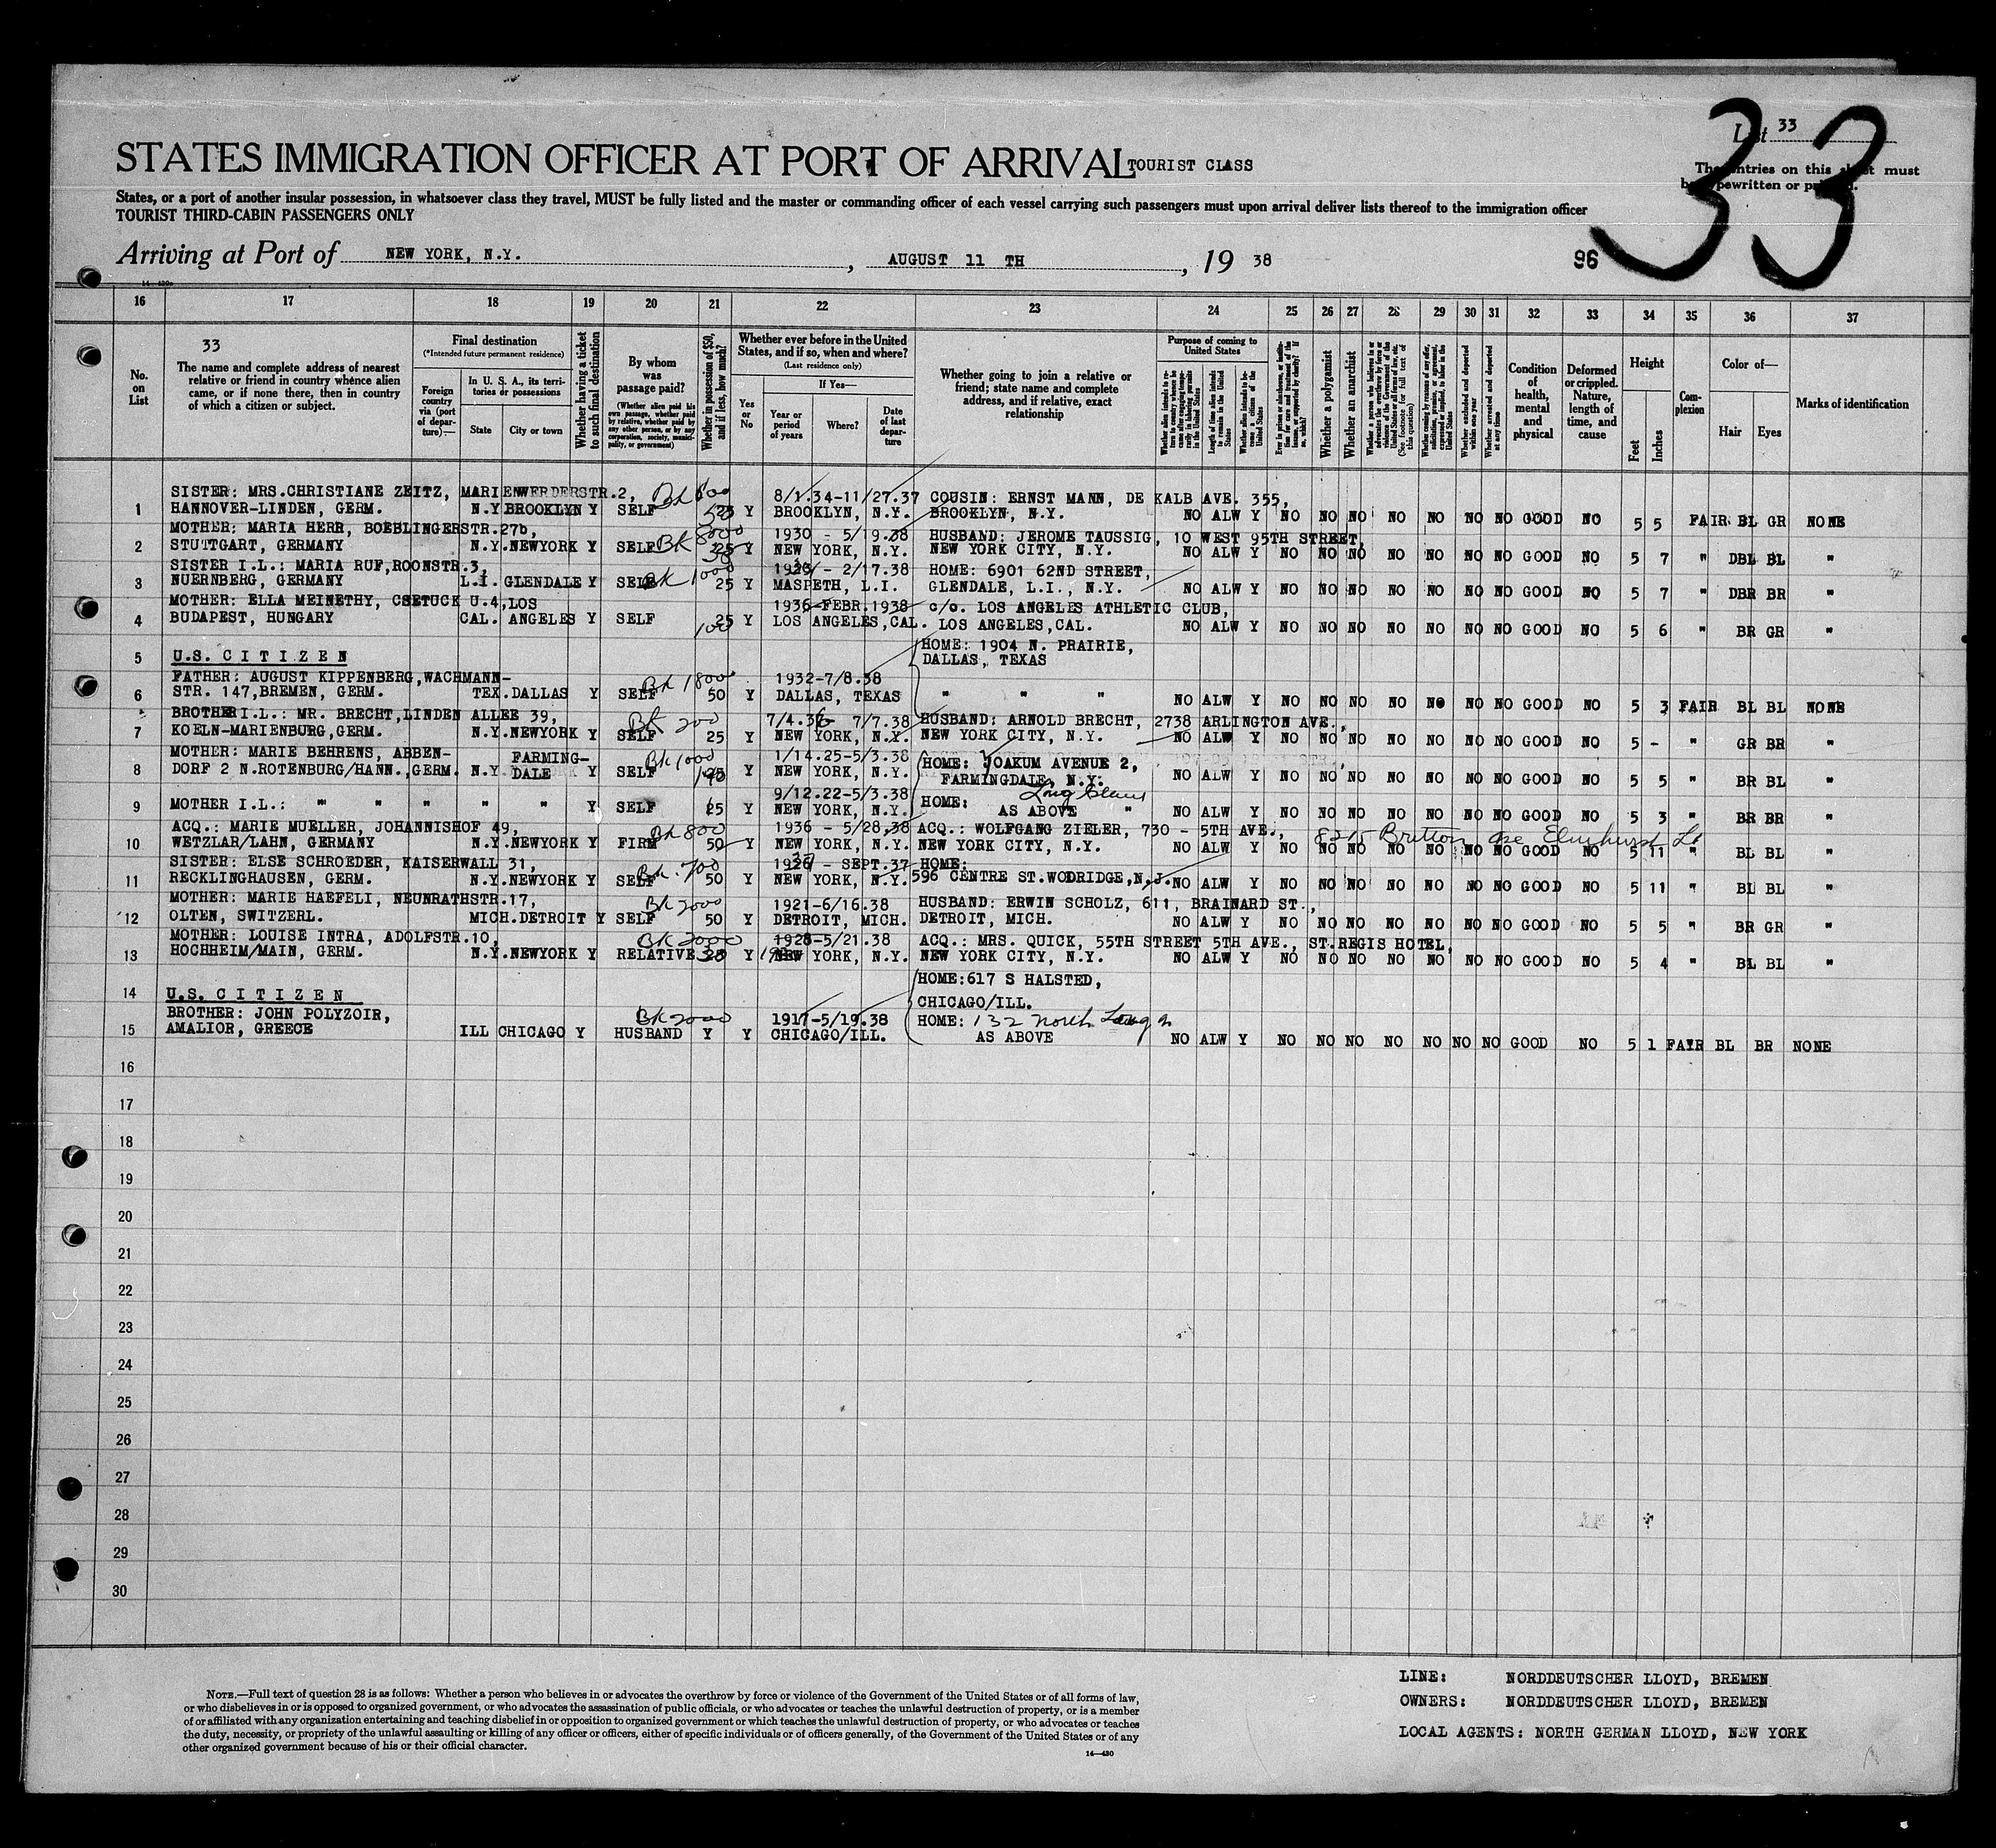 33
List 33
STATES IMMIGRATION OFFICER AT PORT OF ARRIVAL TOURIST CLASS
The entries on this sheet must
be typewritten or printed.
States, or a port of another insular possession, in whatsoever class they travel, MUST be fully listed and the master or commanding officer of each vessel carrying such passengers must upon arrival deliver lists thereof to the immigration officer
TOURIST THIRD-CABIN PASSENGERS ONLY
Arriving at Port of NEW YORK, N.Y., AUGUST 11 TH, 19 38
96
16 17 18 19 20 21 22 23 24 25 26 27 28 29 30 31 32 33 34 35 36 37
No. on List
33
The name and complete address of nearest relative or friend in country whence alien came, or if none there, then in country of which a citizen or subject.
Final destination
(*Intended future permanent residence)
Foreign country via (port of departure)—
In U. S. A., its territories or possessions
State
City or town
Whether having a ticket to such final destination
By whom was passage paid?
(Whether alien paid his own passage, whether paid by relative, whether paid by any other person, or by any corporation, society, municipality, or government)
Whether in possession of $50, and if less, how much?
Whether ever before in the United States, and if so, when and where?
(Last residence only)
Yes or No
If Yes—
Year or period of years
Where?
Date of last departure
Whether going to join a relative or friend; state name and complete address, and if relative, exact relationship
Purpose of coming to United States
Length of time alien intends to remain in the United States
Whether alien intends to become a citizen of the United States
Whether a polygamist
Whether an anarchist
(See footnote for full text of this question)
Whether excluded and deported within one year
Whether arrested and deported at any time
Condition of health, mental and physical
Deformed or crippled. Nature, length of time, and cause
Height
Feet
Inches
Complexion
Color of—
Hair
Eyes
Marks of identification
SISTER: MRS.CHRISTIANE ZEITZ, MARIENWERDERSTR.2, Bk 8/1.34-11/27.37 COUSIN: ERNST MANN, DE KALB AVE. 355,
1 HANNOVER-LINDEN, GERM. N.Y BROOKLYN Y SELF 50 Y BROOKLYN, N.Y. BROOKLYN, N.Y. NO ALW Y NO NO NO NO NO NO NO GOOD NO 5 5 FAIR BL GR NONE
MOTHER: MARIA HERR, BOEBLINGERSTR.27b, Bk 8000 1930 - 5/19.38 HUSBAND: JEROME TAUSSIG, 10 WEST 95TH STREET,
2 STUTTGART, GERMANY N.Y.NEWYORK Y SELF 25 Y NEW YORK, N.Y. NEW YORK CITY, N.Y. NO ALW Y NO NO NO NO NO NO NO GOOD NO 5 7 " DBL BL "
SISTER I.L.: MARIA RUF,ROONSTR.3, Bk 1000 - 2/17.38 HOME: 6901 62ND STREET,
3 NUERNBERG, GERMANY L.I. GLENDALE Y SELF 25 Y MASPETH, L.I. GLENDALE, L.I., N.Y. NO ALW Y NO NO NO NO NO NO NO GOOD NO 5 7 " DBR BR "
MOTHER: ELLA MEINETHY, CSETUCK U.4, LOS 1936-FEBR.1938 c/o. LOS ANGELES ATHLETIC CLUB,
4 BUDAPEST, HUNGARY CAL. ANGELES Y SELF 25 100 Y LOS ANGELES,CAL. LOS ANGELES,CAL. NO ALW Y NO NO NO NO NO NO NO GOOD NO 5 6 " BR GR "
HOME: 1904 N. PRAIRIE,
5 U.S. C I T I Z E N DALLAS, TEXAS
FATHER: AUGUST KIPPENBERG,WACHMANN- Bk 1800 1932-7/8.38
6 STR. 147,BREMEN, GERM. TEX.DALLAS Y SELF 50 Y DALLAS, TEXAS " " " NO ALW Y NO NO NO NO NO NO NO GOOD NO 5 3 FAIR BL BL NONE
BROTHER I.L.: MR. BRECHT,LINDEN ALLEE 39, Bk 200 7/7.38 HUSBAND: ARNOLD BRECHT, 2738 ARLINGTON AVE.,
7 KOELN-MARIENBURG,GERM. N.Y.NEWYORK Y SELF 25 Y NEW YORK, N.Y. NEW YORK CITY, N.Y. NO ALW Y NO NO NO NO NO NO NO GOOD NO 5 - " GR BR "
MOTHER: MARIE BEHRENS, ABBEN- FARMING- Bk 1000 1/14.25-5/3.38 HOME: YOAKUM AVENUE 2,
8 DORF 2 N.ROTENBURG/HANN.,GERM. N.Y. DALE Y SELF Y NEW YORK, N.Y. FARMINGDALE, N.Y. NO ALW Y NO NO NO NO NO NO NO GOOD NO 5 5 " BR BL "
9/12.22-5/3.38 HOME: Long Island
9 MOTHER I.L.: " " " " " Y SELF Y NEW YORK, N.Y. AS ABOVE " NO ALW Y NO NO NO NO NO NO NO GOOD NO 5 3 " BR BR "
ACQ.: MARIE MUELLER, JOHANNISHOF 49, Bk 800 1936 - 5/28.38 ACQ.: WOLFGANG ZIELER, 730 - 5TH AVE., 8215 Britton Ave Elmhurst
10 WETZLAR/LAHN, GERMANY N.Y.NEWYORK Y FIRM 50 Y NEW YORK, N.Y. NEW YORK CITY, N.Y. NO ALW Y NO NO NO NO NO NO NO GOOD NO 5 11 " BL BL "
SISTER: ELSE SCHROEDER, KAISERWALL 31, Bk. 700 - SEPT.37 HOME:
11 RECKLINGHAUSEN, GERM. N.Y.NEWYORK Y SELF 50 Y NEW YORK, N.Y. 596 CENTRE ST.WOODRIDGE,N.J. NO ALW Y NO NO NO NO NO NO NO GOOD NO 5 11 " BL BL "
MOTHER: MARIE HAEFELI, NEUNRATHSTR.17, Bk 2000 1921-6/16.38 HUSBAND: ERWIN SCHOLZ, 611, BRAINARD ST.,
12 OLTEN, SWITZERL. MICH.DETROIT Y SELF 50 Y DETROIT, MICH. DETROIT, MICH. NO ALW Y NO NO NO NO NO NO NO GOOD NO 5 5 " BR GR "
MOTHER: LOUISE INTRA, ADOLFSTR.10, Bk 2000 1928-5/21.38 ACQ.: MRS. QUICK, 55TH STREET 5TH AVE., ST.REGIS HOTEL,
13 HOCHHEIM/MAIN, GERM. N.Y.NEWYORK Y RELATIVE Y NEW YORK, N.Y. NEW YORK CITY, N.Y. NO ALW Y NO NO NO NO NO NO NO GOOD NO 5 4 " BL BL "
HOME:617 S HALSTED,
14 U.S. C I T I Z E N CHICAGO/ILL.
BROTHER: JOHN POLYZOIR, Bk 2000 1917-5/19.38 HOME: 132 north
15 AMALIOR, GREECE ILL CHICAGO Y HUSBAND Y Y CHICAGO/ILL. AS ABOVE NO ALW Y NO NO NO NO NO NO NO GOOD NO 5 1 FAIR BL BR NONE
16
17
18
19
20
21
22
23
24
25
26
27
28
29
30
NOTE.—Full text of question 28 is as follows: Whether a person who believes in or advocates the overthrow by force or violence of the Government of the United States or of all forms of law,
or who disbelieves in or is opposed to organized government, or who advocates the assassination of public officials, or who advocates or teaches the unlawful destruction of property, or is a member
of or affiliated with any organization entertaining and teaching disbelief in or opposition to organized government or which teaches the unlawful destruction of property, or who advocates or teaches
the duty, necessity, or propriety of the unlawful assaulting or killing of any officer or officers, either of specific individuals or of officers generally, of the Government of the United States or of any
other organized government because of his or their official character.
14—430
LINE: NORDDEUTSCHER LLOYD, BREMEN
OWNERS: NORDDEUTSCHER LLOYD, BREMEN
LOCAL AGENTS: NORTH GERMAN LLOYD, NEW YORK